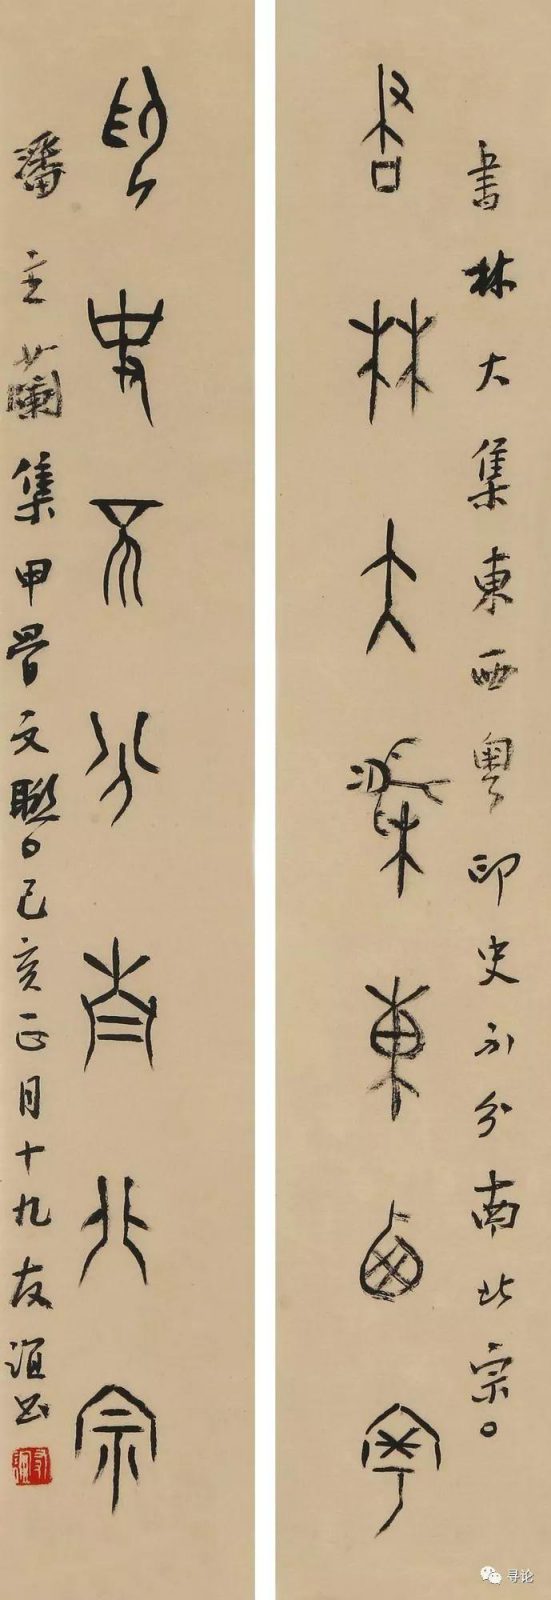 書林大集東西粵印史不分南北宗。
書林大集東西粵
印史不分南北宗
潘主蘭集甲骨文聯。己亥正月十九友誼書
寻论